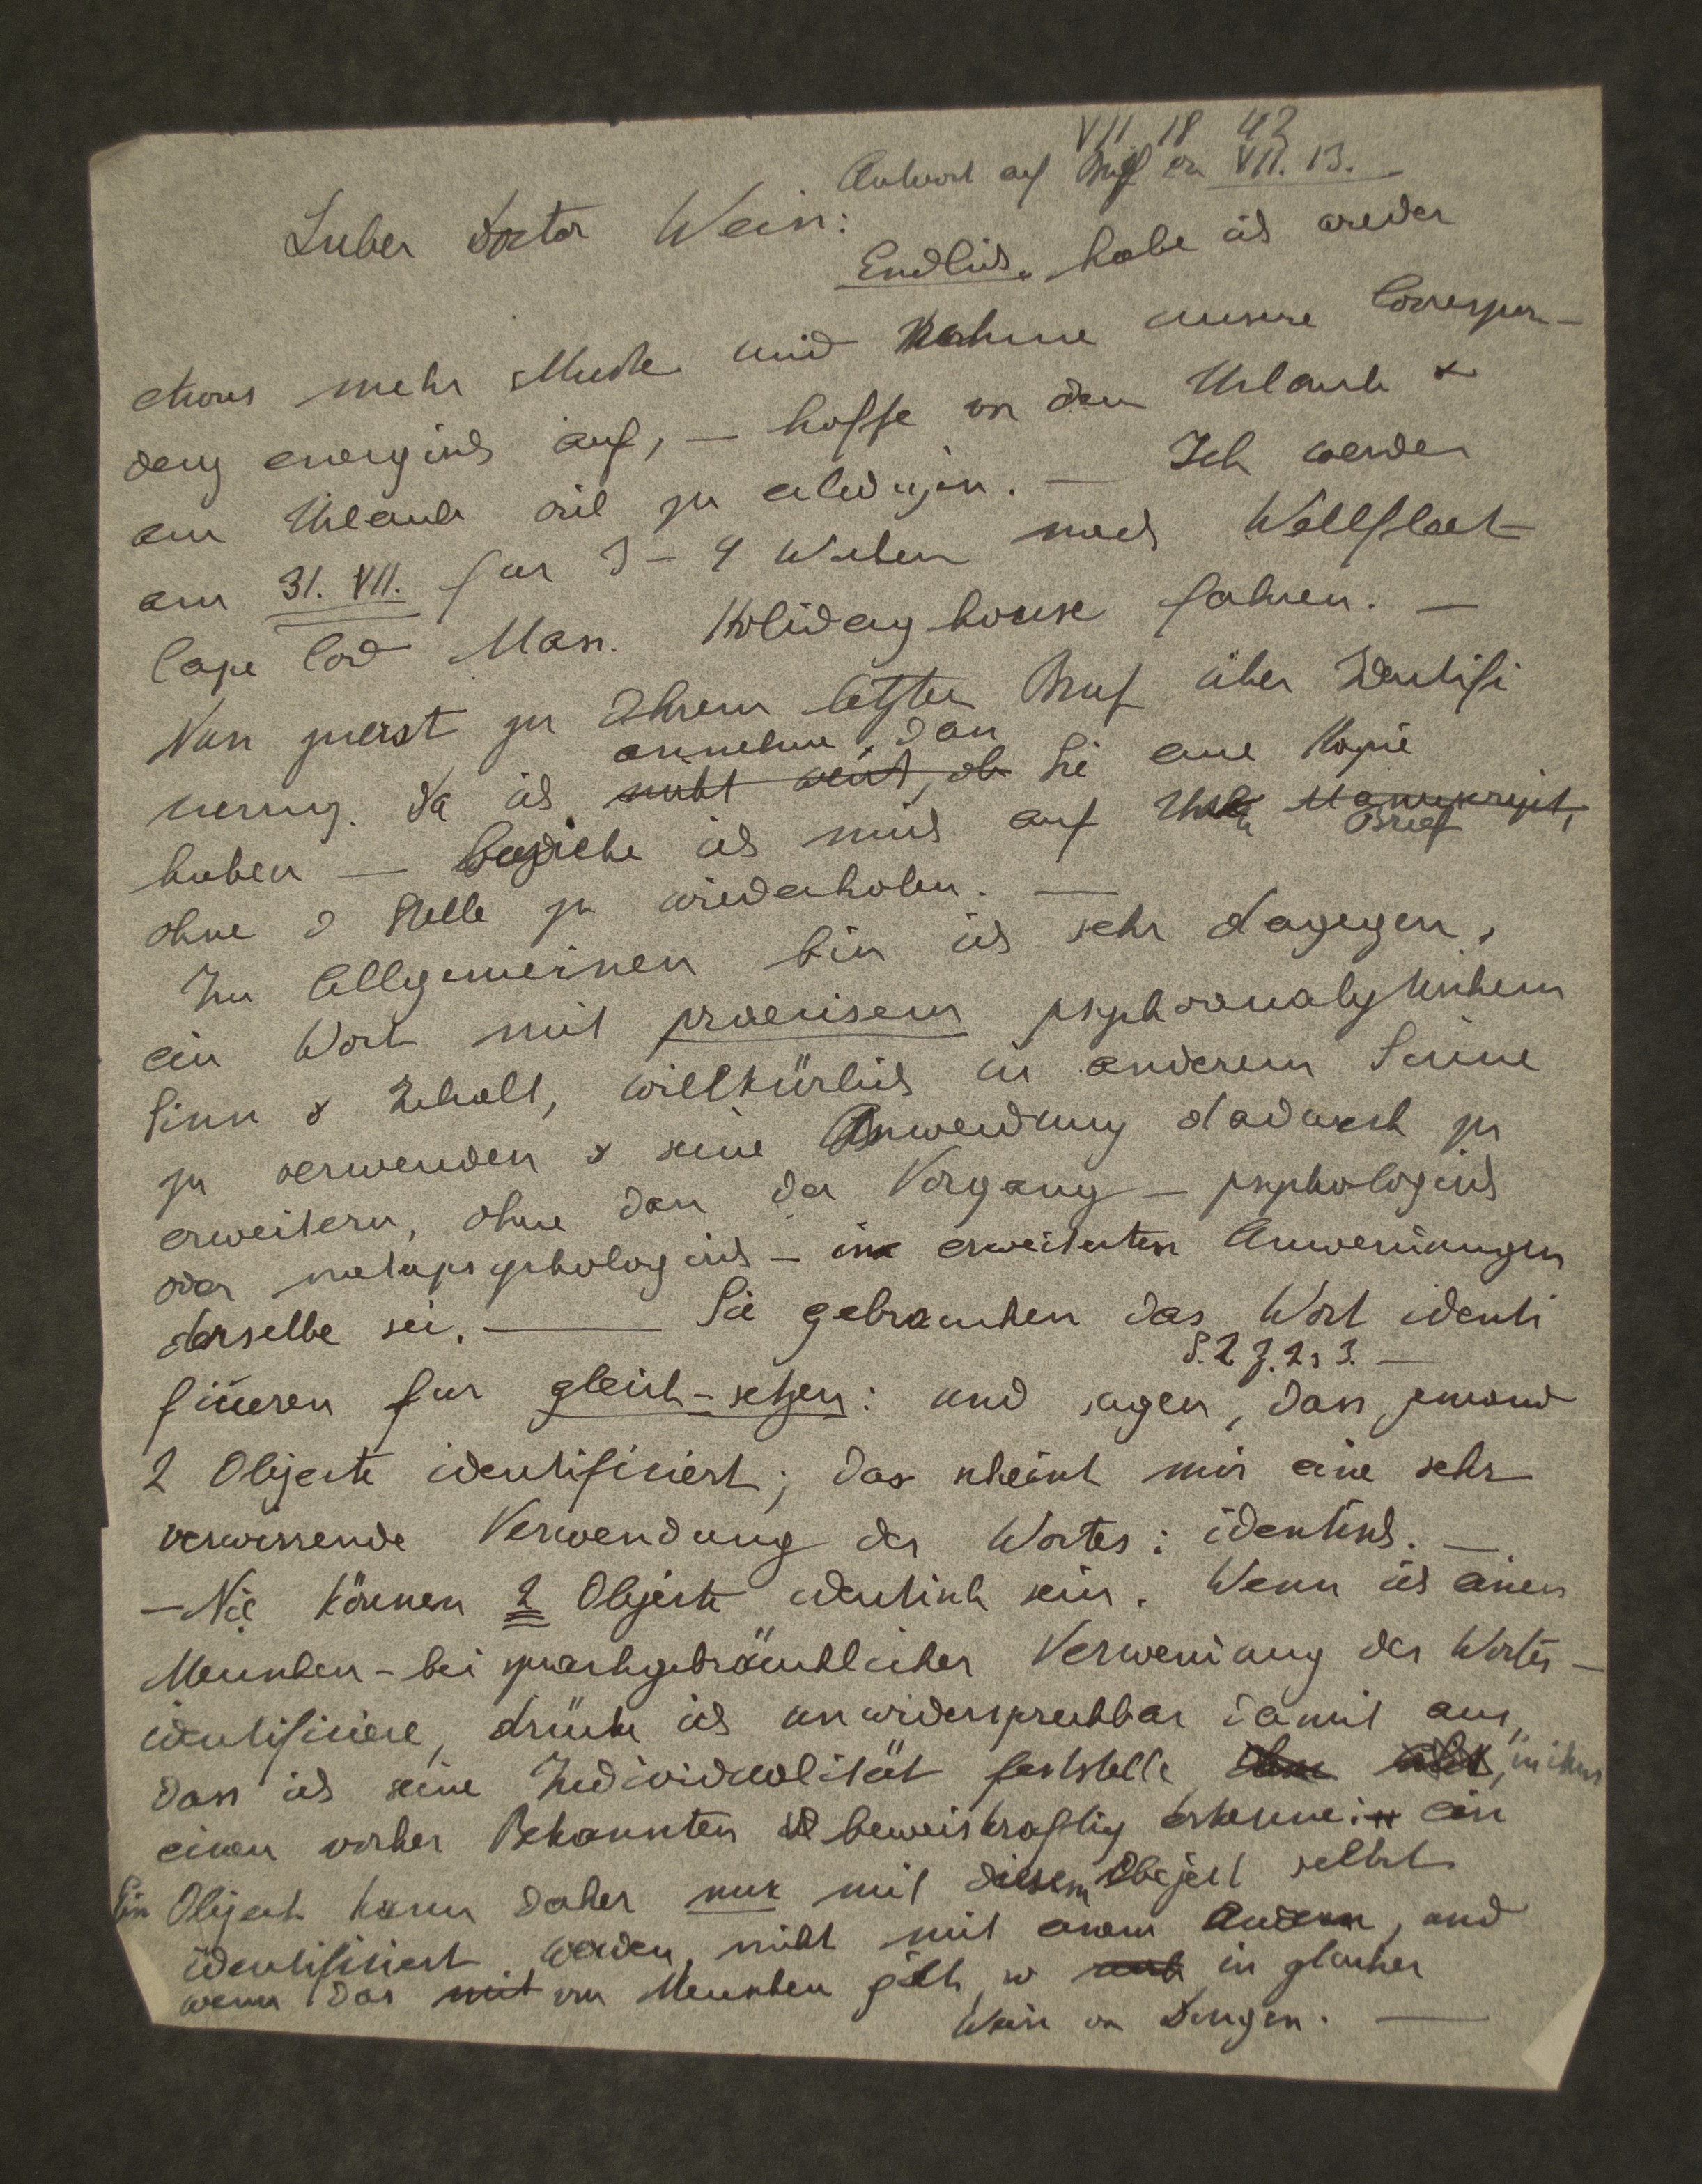 VII 18 42
Antwort auf Brief von VII. 13.
Lieber Doctor Wein:
Endlich habe ich wieder
etwas mehr Musse und nehme unsere Correspon-
denz energisch auf, — hoffe vor dem Urlaub &
am Urlaub viel zu erledigen. — Ich werde
am 31. VII. fur 3 – 4 Wochen nach Wellfleet
Cape Cod Mass. Holiday house fahren. —
Nun zuerst zu Ihrem letzten Brief über Identifi
annehme, dass
zierung. Da ich nicht weiss, ob Sie eine Kopie
haben — beziehe ich mich auf Ihren Manuskript,
Brief
ohne d Stelle zu wiederholen. —
Im Allgemeinen bin ich sehr dagegen,
ein Wort mit praecisem psychoanalytischem
Sinn & Inhalt, willkürlich in anderem Sinne
zu verwenden & seine Anwendung dadurch zu
erweitern, ohne dass der Vorgang – psychologisch
oder metapsychologisch – in erweiterten Anwendungen
derselbe sei. — Sie gebrauchen das Wort identi
S. 2 Z. 2, 3. —
ficieren fur gleich-setzen: und sagen, dass jemand
2 Objecte identificiert; das scheint mir eine sehr
verwirrende Verwendung des Wortes: identisch. —
— Nie können 2 Objecte identisch sein. Wenn ich einen
Menschen – bei sprachgebräuchlicher Verwendung des Wortes –
identificiere, drücke ich unwidersprechbar damit aus,
dass ich seine Individualität feststelle, in ihm
einen vorher Bekannten beweiskraftig erkenne: ein
Ein Object kann daher nur mit diesem Object selbst
identificiert werden, nicht mit einem Andern, und
wenn das mit von Menschen gilt, so auch in gleicher
Weise von Dingen. —